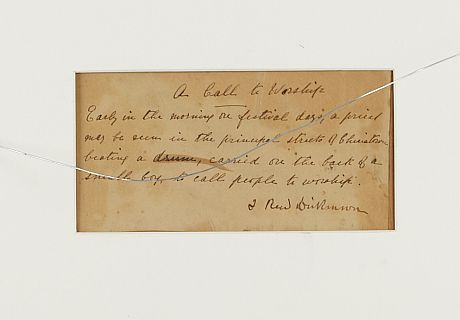 A Call to Worship
Early in the morning on festival days, a priest
may be seen in the principal streets of
beating a drum, carried on the back of a
small boy, to call people to worship.
J Reid Dickson